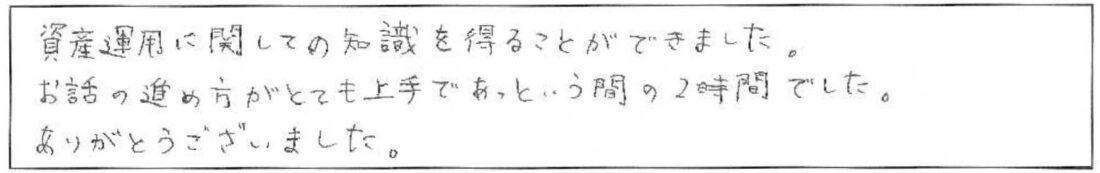 資産運用に関しての知識を得ることができました。
お話の進め方がとても上手であっという間の2時間でした。
ありがとうございました。